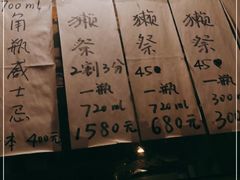 700ml
角
瓶
威
士
忌
本 400元
獺
祭
2割3分
一瓶
720ml
1580元
獺
祭
45
一瓶
720ml
680元
獺
祭
45
一瓶
300
300